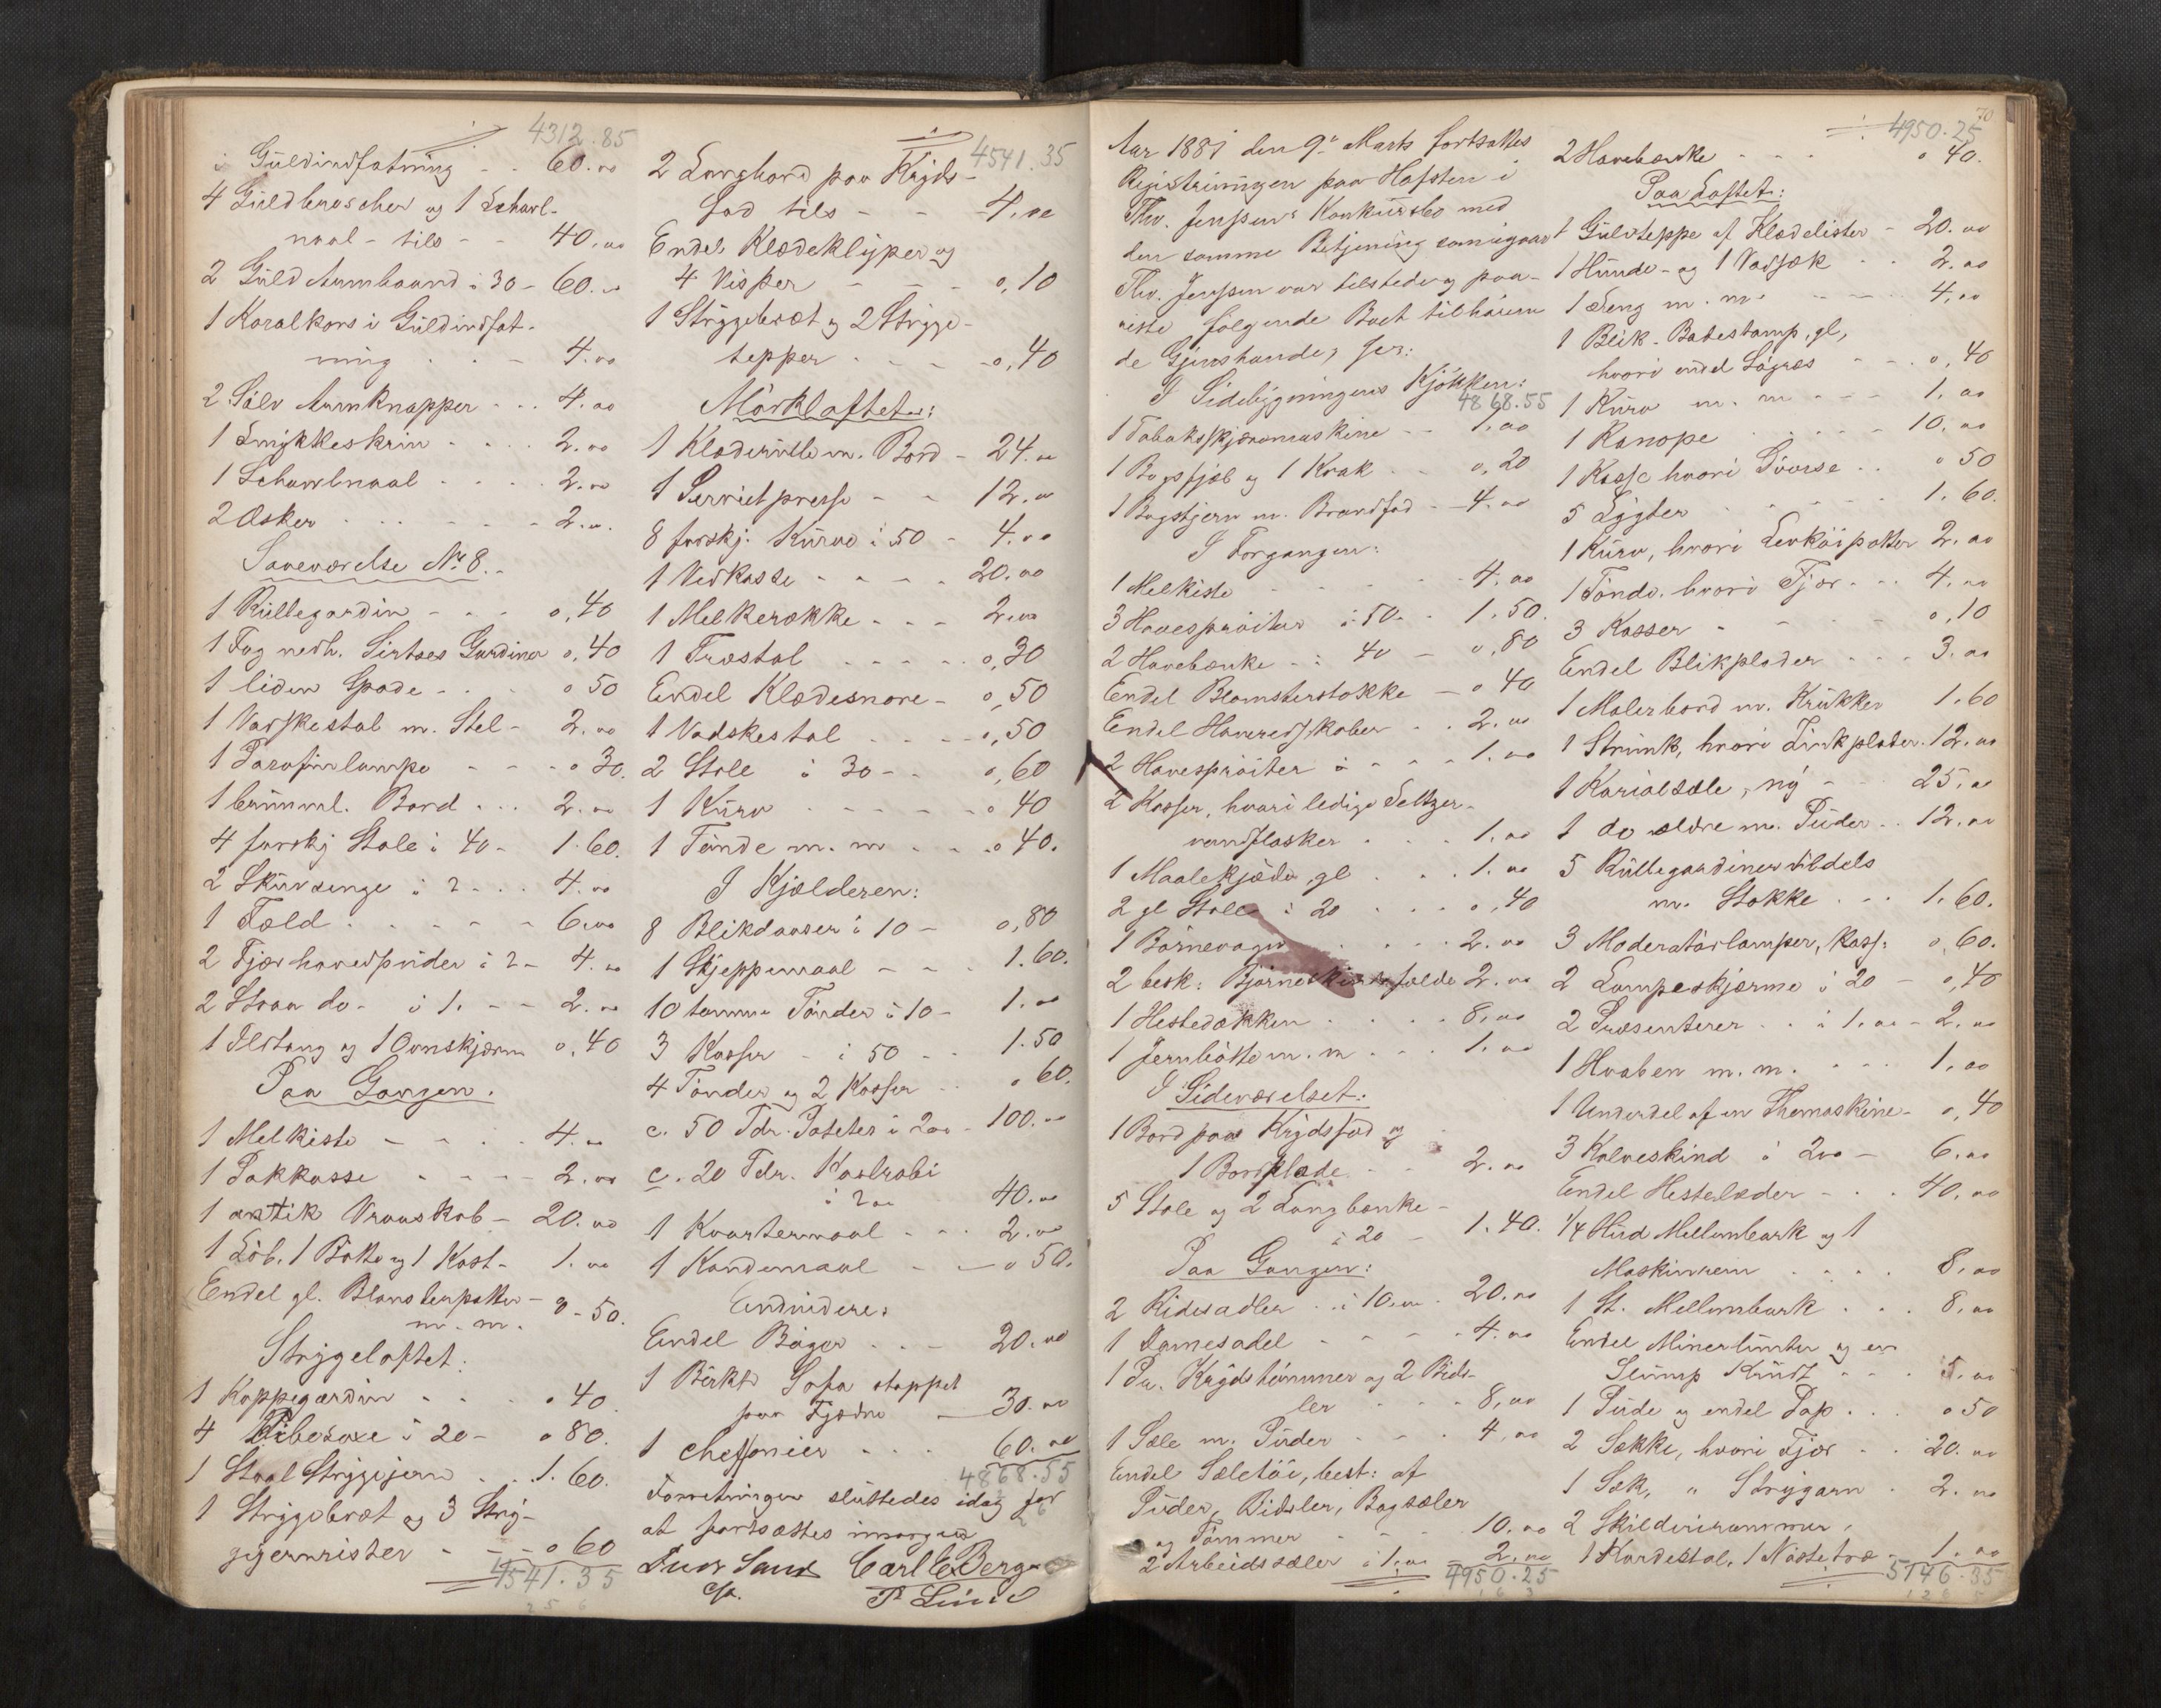 4312.85
i Guldindfatning - . 60.00
4 Guldbroscher og 1 Schavl-
naal - tils - - 40.00
2 Guld Armbaand à 30 - 60.00
1 Koralkors i Guldindfat-
ning . . - 4.00
2 Sølv Armknapper - . . 4.00
1 Smykkeskrin - . . . 2.00
1 Schawlnaal . . . . 2.00
2 Æsker . . . - - - 2.00
Soveværelse No 8.
1 Rullegardin - - - 0,40
1 Fag nedh. Sirtses Gardiner 0,40
1 liden Spade - . . 0 50
1 Vaskestol m. Stel - 2.00
1 Parafinlampe - - - 0 30.
1 brunml. Bord . . . 2.00
4 forskj Stole à 40 - 1.60.
2 Skuvsenge à 2 . . . 4.00
1 Fæld . . . - - 6.00
2 Fjærhovedpuder à 2 - 4.00
2 Straa do - à 1. - - 2.00
1 Ildtang og 1 Ovnskjærm 0,40
Paa Gangen.
1 Melkiste - - . . 4.00
1 Pakkasse . . - - 2.00
1 antik Vraaskab - 20.00
1 Løb. 1 Bøtte og 1 Kost - 1.00
Endel gl. Blomsterpotter - 0-50.
m. m.
Strygeloftet:
1 Kappegardin - - . 0 40
4 Pibesaxe à 20 - 0 80.
1 Staal Strygejern . . 1.60.
1 Strygebræt og 3 Stry-
gejernrister - - - 0 60
4541.35
4541.35
2 Langbord paa Kryds-
fod tils - - - 4.00
Endel Klædeklyper og
4 Visper - - - 0,10
1 Strygebræt og 2 Stryge-
tepper . - - 0,40
Mørkloftet:
1 Klæderulle m. Bord - 24.00
1 Servietpresse - - 12.00
8 forskj. Kurve à 50 - 4.00
1 Vedkasse - - - - 20.00
1 Melkerække - - - 2.00
1 Træstol . . - - . 0,30
Endel Klædesnore - 0,50
1 Vadskestol . . . - 0,50
2 Stole à 30 - - 0,60
1 Kurv - - - - - 0 40
1 Tønde m. m . . . 0 40.
I Kjælderen:
8 Blikdaaser à 10 - 0,80
1 Skjeppemaal - - - 1.60.
10 tomme Tønder à 10 - 1.00
3 Kasser - à 50 - - 1.50
4 Tønder og 2 Kasser . . 0 60.
c. 50 Tdr. Poteter à 2.00 - 100.00
c. 20 Tdr. Kaalrabi
à 2.00 40.00
1 Kvartermaal - . . 2.00
1 Kandemaal - - 0 50.
Endvidere:
Endel Bøger . . - 20.00
1 Birktr Sofa stoppet
paa Fjædre - 30.00
1 cheffonier . . . 60.00
4868.55
Forretningen sluttedes idag for
at fortsættes imorgen
Carl E Berg
P Lund
70
Aar 1881 den 9de Marts fortsattes
Registreringen paa Hofsten i
Thv. Jenssens Konkursbo med
den samme Betjening som igaar
Thv. Jenssen var tilstede og paa-
viste følgende Boet tilhøren
de Gjenstande, ser:
I Sidebygningens Kjøkken:
4868.55
1 Tobakskjæremaskine - - 1.00
1 Bagsfjøl og 1 Krak . - 0,20
1 Bagstjern m. Brandfod - 4.00
I Forgangen:
1 Melkiste - - - - 4.00
3 Havesprøiter à 50 - . 1.50.
2 Havebænke - à 40 - 0,80
Endel Blomsterstokke - 0 40
Endel Haveredskaber . . 2.00
2 Havesprøiter à - - - 1.00
2 Kasser, hvori ledige Seltzer-
vandflasker . . . 1.00
1 Maalekjæde, gl . . . 1.00
2 gl Stole à 20 . . . 0,40
1 Børnevogn . . . . 2.00
2 besk: Bjørneskindsfælde 2.00
1 Hestedækken . . . . 8.00
1 Jernbøtte m. m . . . 1.00
I Sideværelset:
1 Bord paa Krydsfod og
1 Bordplade - - 2.00
5 Stole og 2 Langbænke -
à 20 - 1.40.
Paa Gangen:
2 Ridesadler . . à 10.00 . 20.00
1 Damesadel - - - - 4.00
1 Par Krydstømmer og 2 Bids-
ler . - - 8,00
1 Sæle m. Puder - - - 4,00
Endel Sæletøi, best: af
Puder, Bidsler, Bagsæler
og Tømmer . - - . 10.00
2 Arbeidssæler à 1.00 - 2.00
4950.25
4950.25
2 Havebænke - - - 0 40.
Paa Loftet:
1 Gulvteppe af Klædelister - 20.00
1 Hunde- og 1 Vadsæk . . 2.00
1 Seng m. m. - - - 4,00
1 Blik-Badestamp, gl,
hvori endel Søgræs - - . 0,40
1 Kurv m. m - - - 1.00
1 Kanope . . . . - 10.00
1 Kasse hvori Gvorse . . 0 50
5 Lygter . . . . - 1.60.
1 Kurv, hvori Levkøipotter 2.00
1 Tønde, hvori Fjær . . . 4.00
3 Kasser - . - . - 0,10
Endel Blikplader . . . 3.00
1 Malerbord m. Krukker 1.60
1 Strunk, hvori Zinkplader. 12.00
1 Kariolsæle, ny - - 25.00
1 do ældre m. Puder . . 12.00
5 Rullegardiner tildels
m. Stokke . . . 1.60.
3 Moderatørlamper, Kass: 0,60.
2 Lampeskjærme à 20 - 0,40
2 Præsenterer . . à 1.00 - 2.00
1 Hvaben m. m. - - - 1.00
1 Underdel af en Themaskine - 0,40
3 Kalveskind à 2.00 - 6.00
Endel Hestelæder - - . 40.00
1/4 Hud Mellembark og 1
Maskinrem . . . . 8.00
1 St. Mellembark . . . 8.00
Endel Minerlunter og en
Slump Krudt . . . 5.00
1 Pude og endel Pap . . . 0 50
2 Sække, hvori Fjær . . 20.00
1 Sæk, " Strygarn . 2.00
2 Skilderirammer,
1 Kardestol, 1 Nøstetræ - 1.00
5146.35